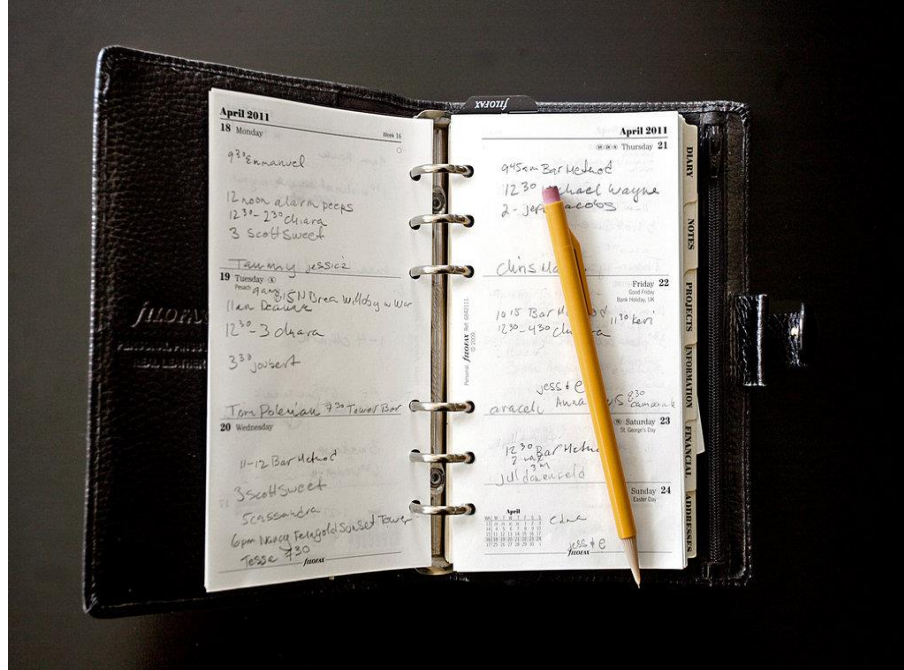 April 2011
18 Monday
Week 16
9³⁰ Emmanuel
12 noon alarm peeps
12³⁰ - 2³⁰ Chiara
3 Scott Sweet
Tammy Jessica
19 Tuesday
Pesach
9am 815 N Brea w Moby w War
11am
12³⁰ - 3 Chiara
3³⁰ Joubert
Tom Poleman 7³⁰ Tower Bar
20 Wednesday
11-12 Bar Method
3 Scott Sweet
5 Cassandra
6pm Nancy Feingold Sunset Tower
Tesse 7³⁰
FILOFAX
FILOFAX
FILOFAX
April 2011
Thursday 21
945am Bar Method
12³⁰ Michael Wayne
2 - Jeff Jacobs
Chris
Friday 22
Good Friday
Bank Holiday, UK
10 15 Bar Method
11³⁰ Keri
12³⁰ - 4³⁰
jess & e
araceli Anna 8³⁰
Personal FILOFAX © 2009
Saturday 23
St. George's Day
12³⁰ Bar Method
Sunday 24
Easter Day
April
edna
jess & e
FILOFAX
DIARY
NOTES
PROJECTS
INFORMATION
FINANCIAL
ADDRESSES